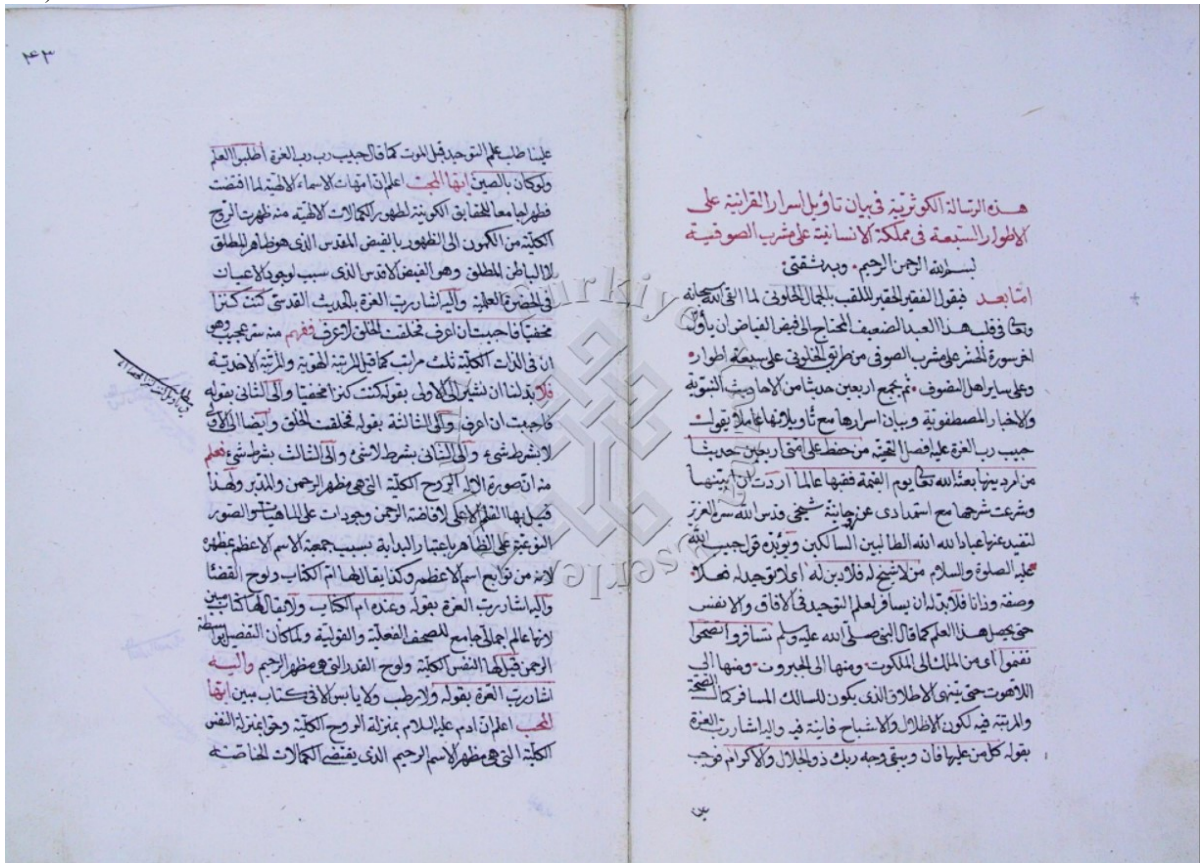 هذه الرسالة الكوثرية في بيان تاؤيل اسرار القرانية على
الاطوار السبعة في مملكة الانسانية على مشرب الصوفية
بسم الله الرحمن الرحيم وبه ثقتي
اما بعد فيقول الفقير الحقير الملقب بالجمال الخلوتي لما القى الله سبحانه
وتعالى في قلب هذا العبد الضعيف المحتاج الى فيض الفياض ان ياؤل
اخر سورة الحشر على مشرب الصوفي من طريق الخلوتي على سبعة اطوار
وعلى ساير اهل التصوف ثم يجمع اربعين حديثا من الاحاديث النبوية
والاخبار المصطفوية وبيان اسرارها مع تاويلاتها عاملا بقول
حبيب رب العزة عليه افضل التحية من حفظ على امتي اربعين حديثا
من امر دينها بعثه الله تعالى يوم القيمة فقيها عالما اردت ان ابينها
وشرعت شرحها مع استمدادي عن روحانية شيخي قدس الله سره العزيز
لتفيد عنها عباد الله الطالبين السالكين ويؤيده قول حبيب الله
عليه الصلوة والسلام من لا شيخ له فلا دين له اى لا توحيد له فعلا
وصفة وذاتا فلا بد له ان يسافر لعلم التوحيد في الافاق والانفس
حتى يحصل هذا العلم كما قال النبي صلى الله عليه وسلم سافروا تصحوا
تغنموا اى من الملك الى الملكوت ومنها الى الجبروت ومنها الى
اللاهوت حتى ينتهى الاطلاق الذى يكون للسالك المسافر كمال الصحة
والمرتبة فيه لكون الاظلال والاشباح فانية فيه واليه اشار رب العزة
بقوله كل من عليها فان ويبقى وجه ربك ذو الجلال والاكرام فوجب
٤٣
علينا طلب علم التوحيد قبل الموت كما قال حبيب رب العزة اطلبوا العلم
ولو كان بالصين ايها المحب اعلم ان امهات الاسماء الالهية لما اقتضت
مظهرا جامعا للحقايق الكونية لظهور الكمالات الالهية منه ظهرت الروح
الكلية من الكمون الى الظهور بالفيض المقدس الذى هو ظاهر المطلق
لا الباطن المطلق وهو الفيض الاقدس الذى سبب لوجود الاعيان
في الحضرة العلمية واليه اشار رب العزة بالحديث القدسي كنت كنزا
مخفيا فاحببت ان اعرف فخلقت الخلق لاعرف ففهم منه سر عجيب وهو
ان في الذات الكلية ثلث مراتب كما قيل المرتبة الهوية والمرتبة الاحدية
فلا بد لنا ان نشير الى الاولى بقوله كنت كنزا مخفيا والى الثانى بقوله
فاحببت ان اعرف والى الثالثة بقوله فخلقت الخلق وايضا الى الاولى
لا بشرط شيء والى الثانى بشرط لا شيء والى الثالث بشرط شيء فعلم
منه ان صورة الاله الروح الكلية التي هي مظهر الرحمن والمدبر ولهذا
قيل بها القلم الاعلى لافاضة الرحمن وجودات على الماهيات والصور
النوعية على الظاهر باعتبار البداية بسبب جمعية الاسم الاعظم بمظهره
لانه من توابع اسم الاعظم وكذا يقال لها ام الكتاب ولوح القضا
واليه اشار رب العزة بقوله وعنده ام الكتاب ولا يقال لها كتاب مبين
لانها عالم اجمالى جامع للصحف الفعلية والقولية ولما كان التفصيل بواسطة
الرحمن قيل لها النفس الكلية ولوح القدر التي هي مظهر الرحيم واليه
اشار رب العزة بقوله ولا رطب ولا يابس الا في كتاب مبين ايها
المحب اعلم ان ادم عليه السلام بمنزلة الروح الكلية وحوا بمنزلة النفس
الكلية التي هي مظهر الاسم الرحيم الذى يقتضى الكمالات الخاصة